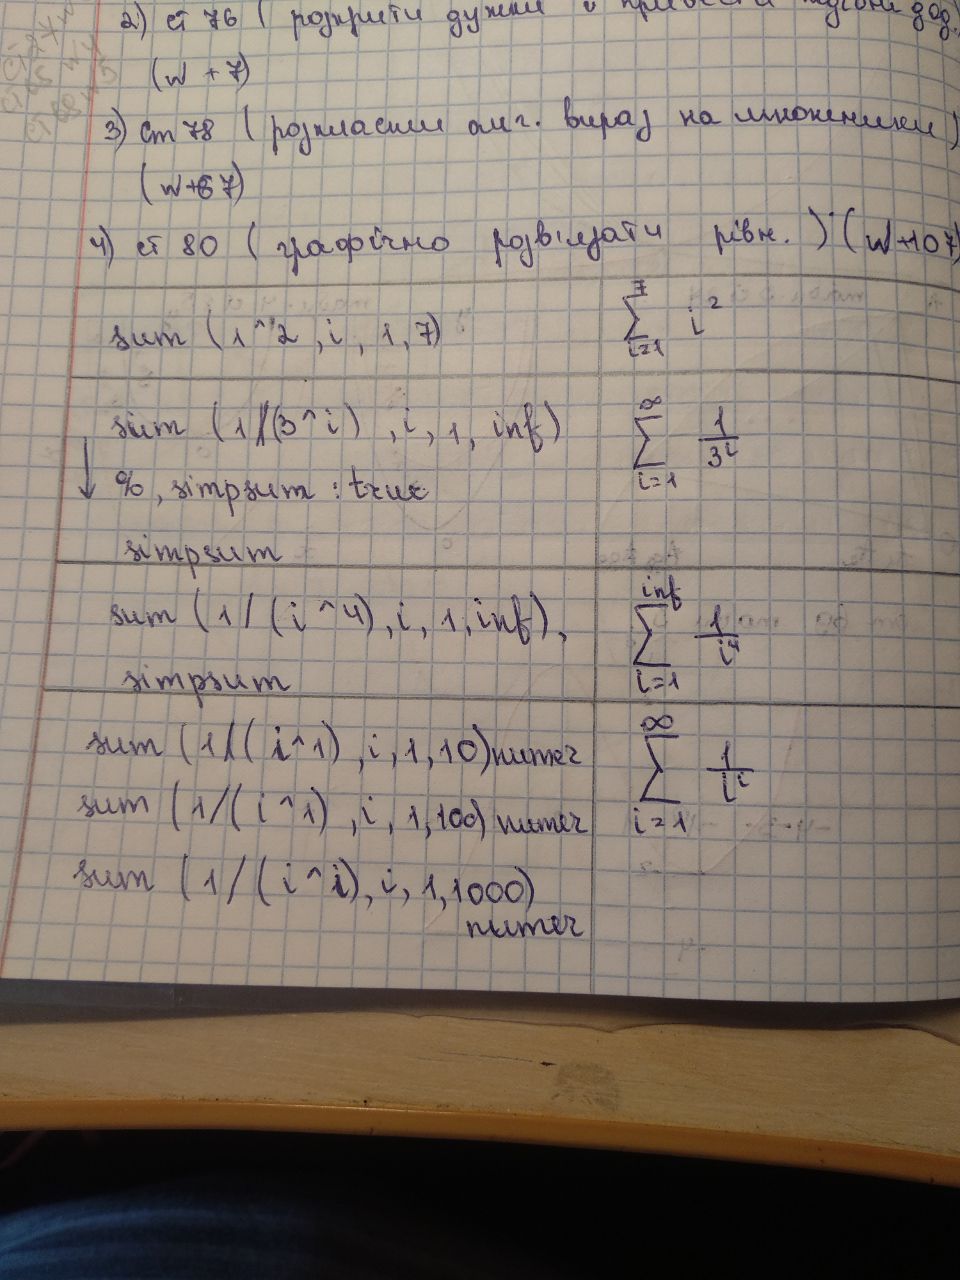 2) ст 76 ( розкрити дужки і
(№ + 7)
3) ст 78 ( розкласти алг. вираз на множники)
(№+67)
4) ст 80 ( графічно розв'язати рівн. ) (№+107)
sum (1^2 , i , 1, 7)
7
∑ i²
i=1
sum (1/(3^i) , i, 1, inf)
%, simpsum : true
simpsum
∞
∑ 1/3ⁱ
i=1
sum (1/(i^4), i, 1, inf),
simpsum
inf
∑ 1/i⁴
i=1
sum (1/(i^1) , i, 1, 10) numer
sum (1/(i^1) , i, 1, 100) numer
sum (1/(i^i), i, 1, 1000)
numer
∞
∑ 1/iⁱ
i=1